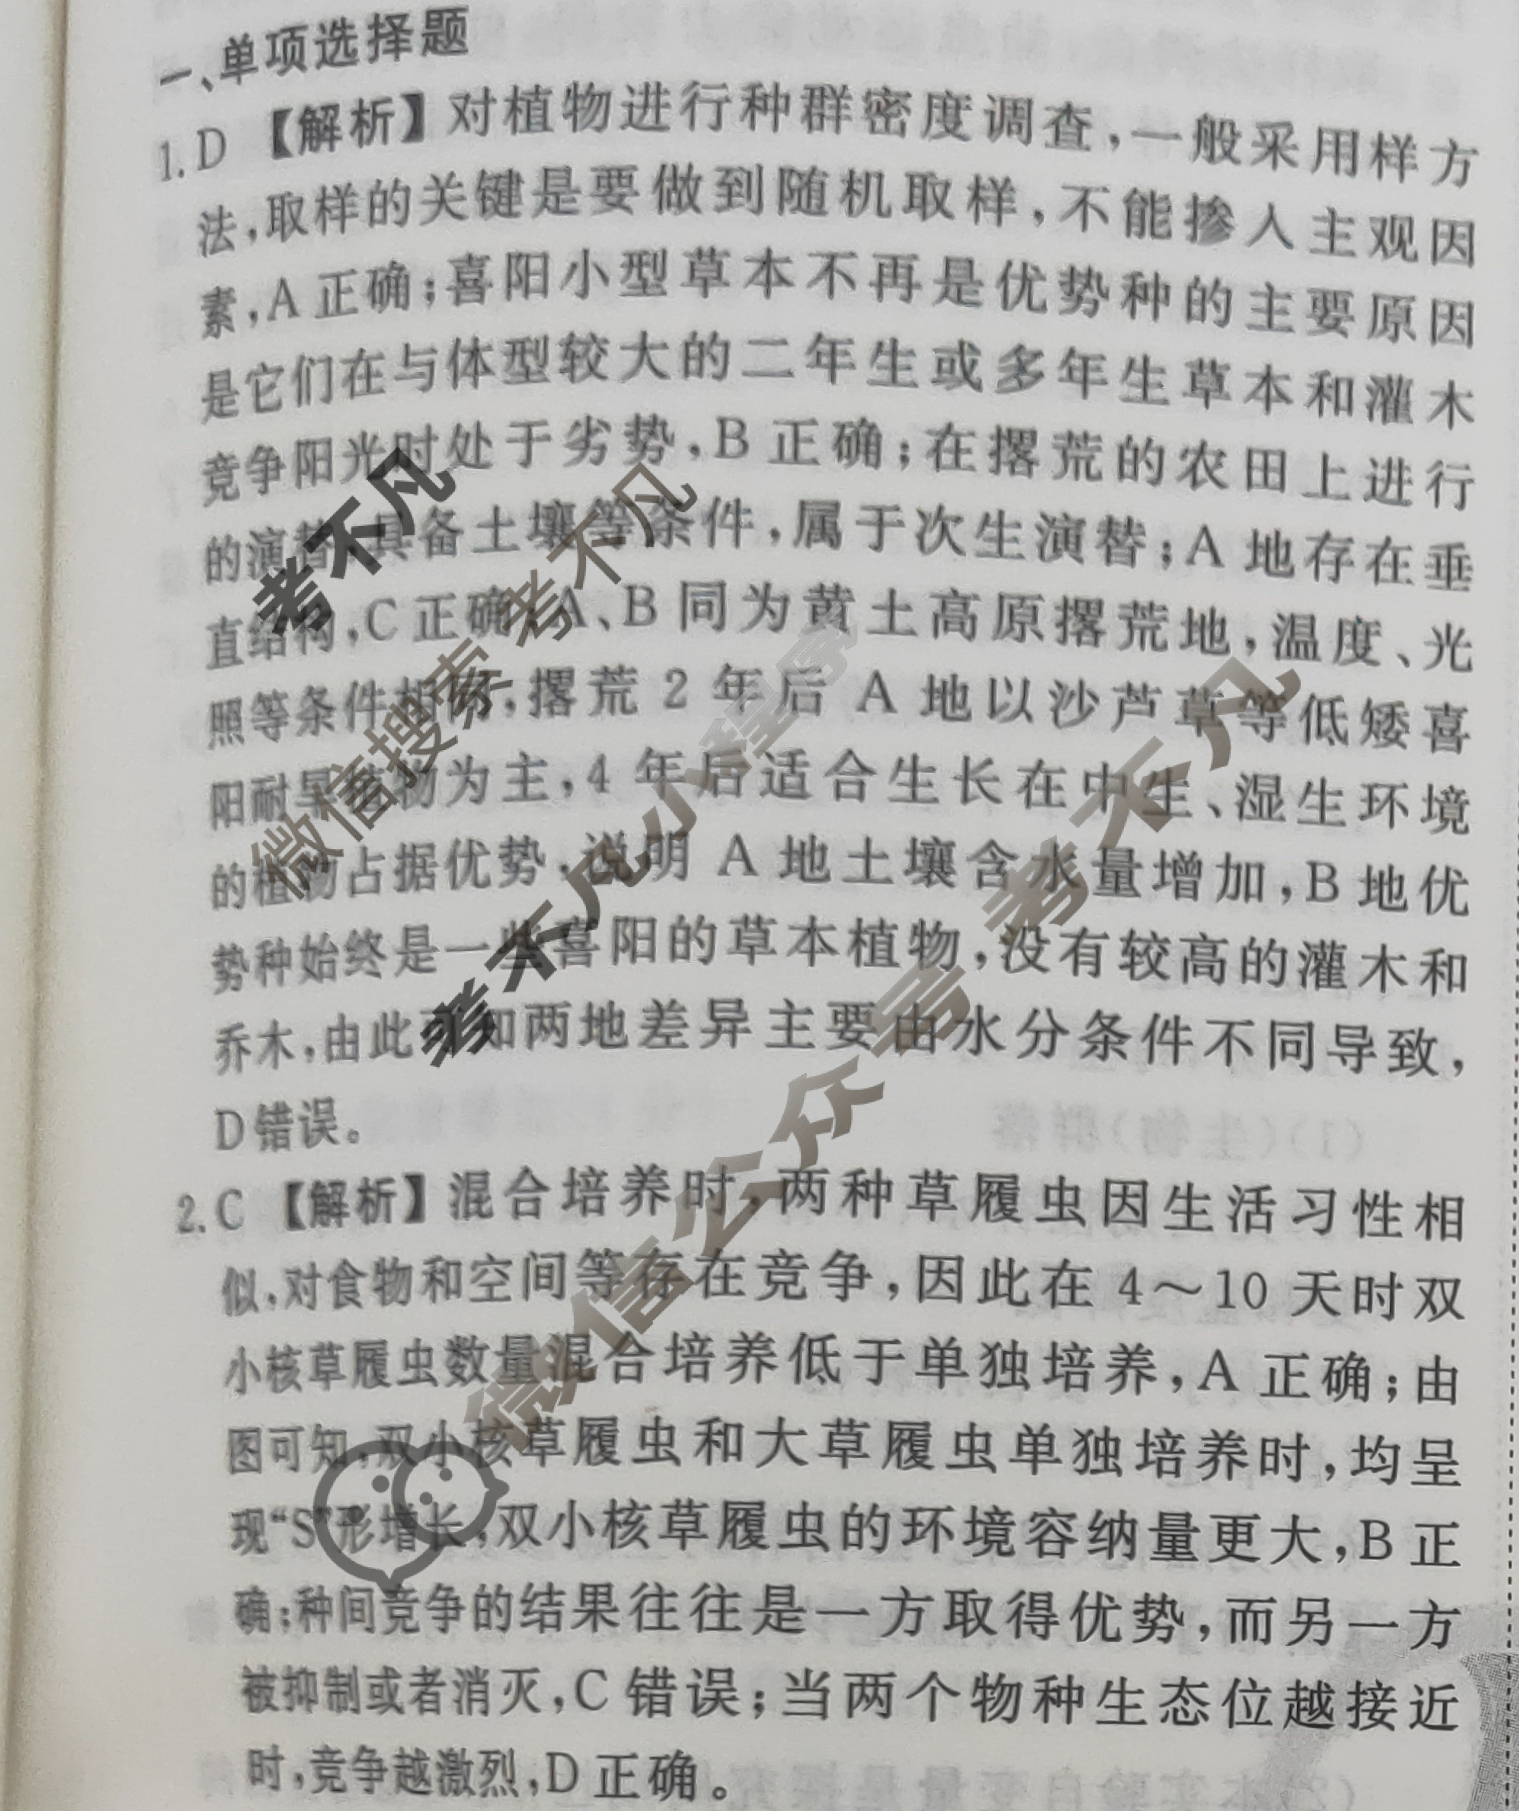 一、单项选择题
1. D 【解析】对植物进行种群密度调查,一般采用样方
法,取样的关键是要做到随机取样,不能掺入主观因
素,A 正确;喜阳小型草本不再是优势种的主要原因
是它们在与体型较大的二年生或多年生草本和灌木
竞争阳光时处于劣势,B 正确;在撂荒的农田上进行
的演替,具备土壤等条件,属于次生演替;A 地存在垂
直结构,C 正确;A、B 同为黄土高原撂荒地,温度、光
照等条件相似,撂荒 2 年后 A 地以沙芦草等低矮喜
阳耐旱植物为主,4 年后适合生长在中生、湿生环境
的植物占据优势,说明 A 地土壤含水量增加,B 地优
势种始终是一些喜阳的草本植物,没有较高的灌木和
乔木,由此可知两地差异主要由水分条件不同导致,
D 错误。
2. C 【解析】混合培养时,两种草履虫因生活习性相
似,对食物和空间等存在竞争,因此在 4～10 天时双
小核草履虫数量混合培养低于单独培养,A 正确;由
图可知,双小核草履虫和大草履虫单独培养时,均呈
现“S”形增长,双小核草履虫的环境容纳量更大,B 正
确;种间竞争的结果往往是一方取得优势,而另一方
被抑制或者消灭,C 错误;当两个物种生态位越接近
时,竞争越激烈,D 正确。
考不凡
微信搜索 考不凡
考不凡小程序
微信公众号 考不凡